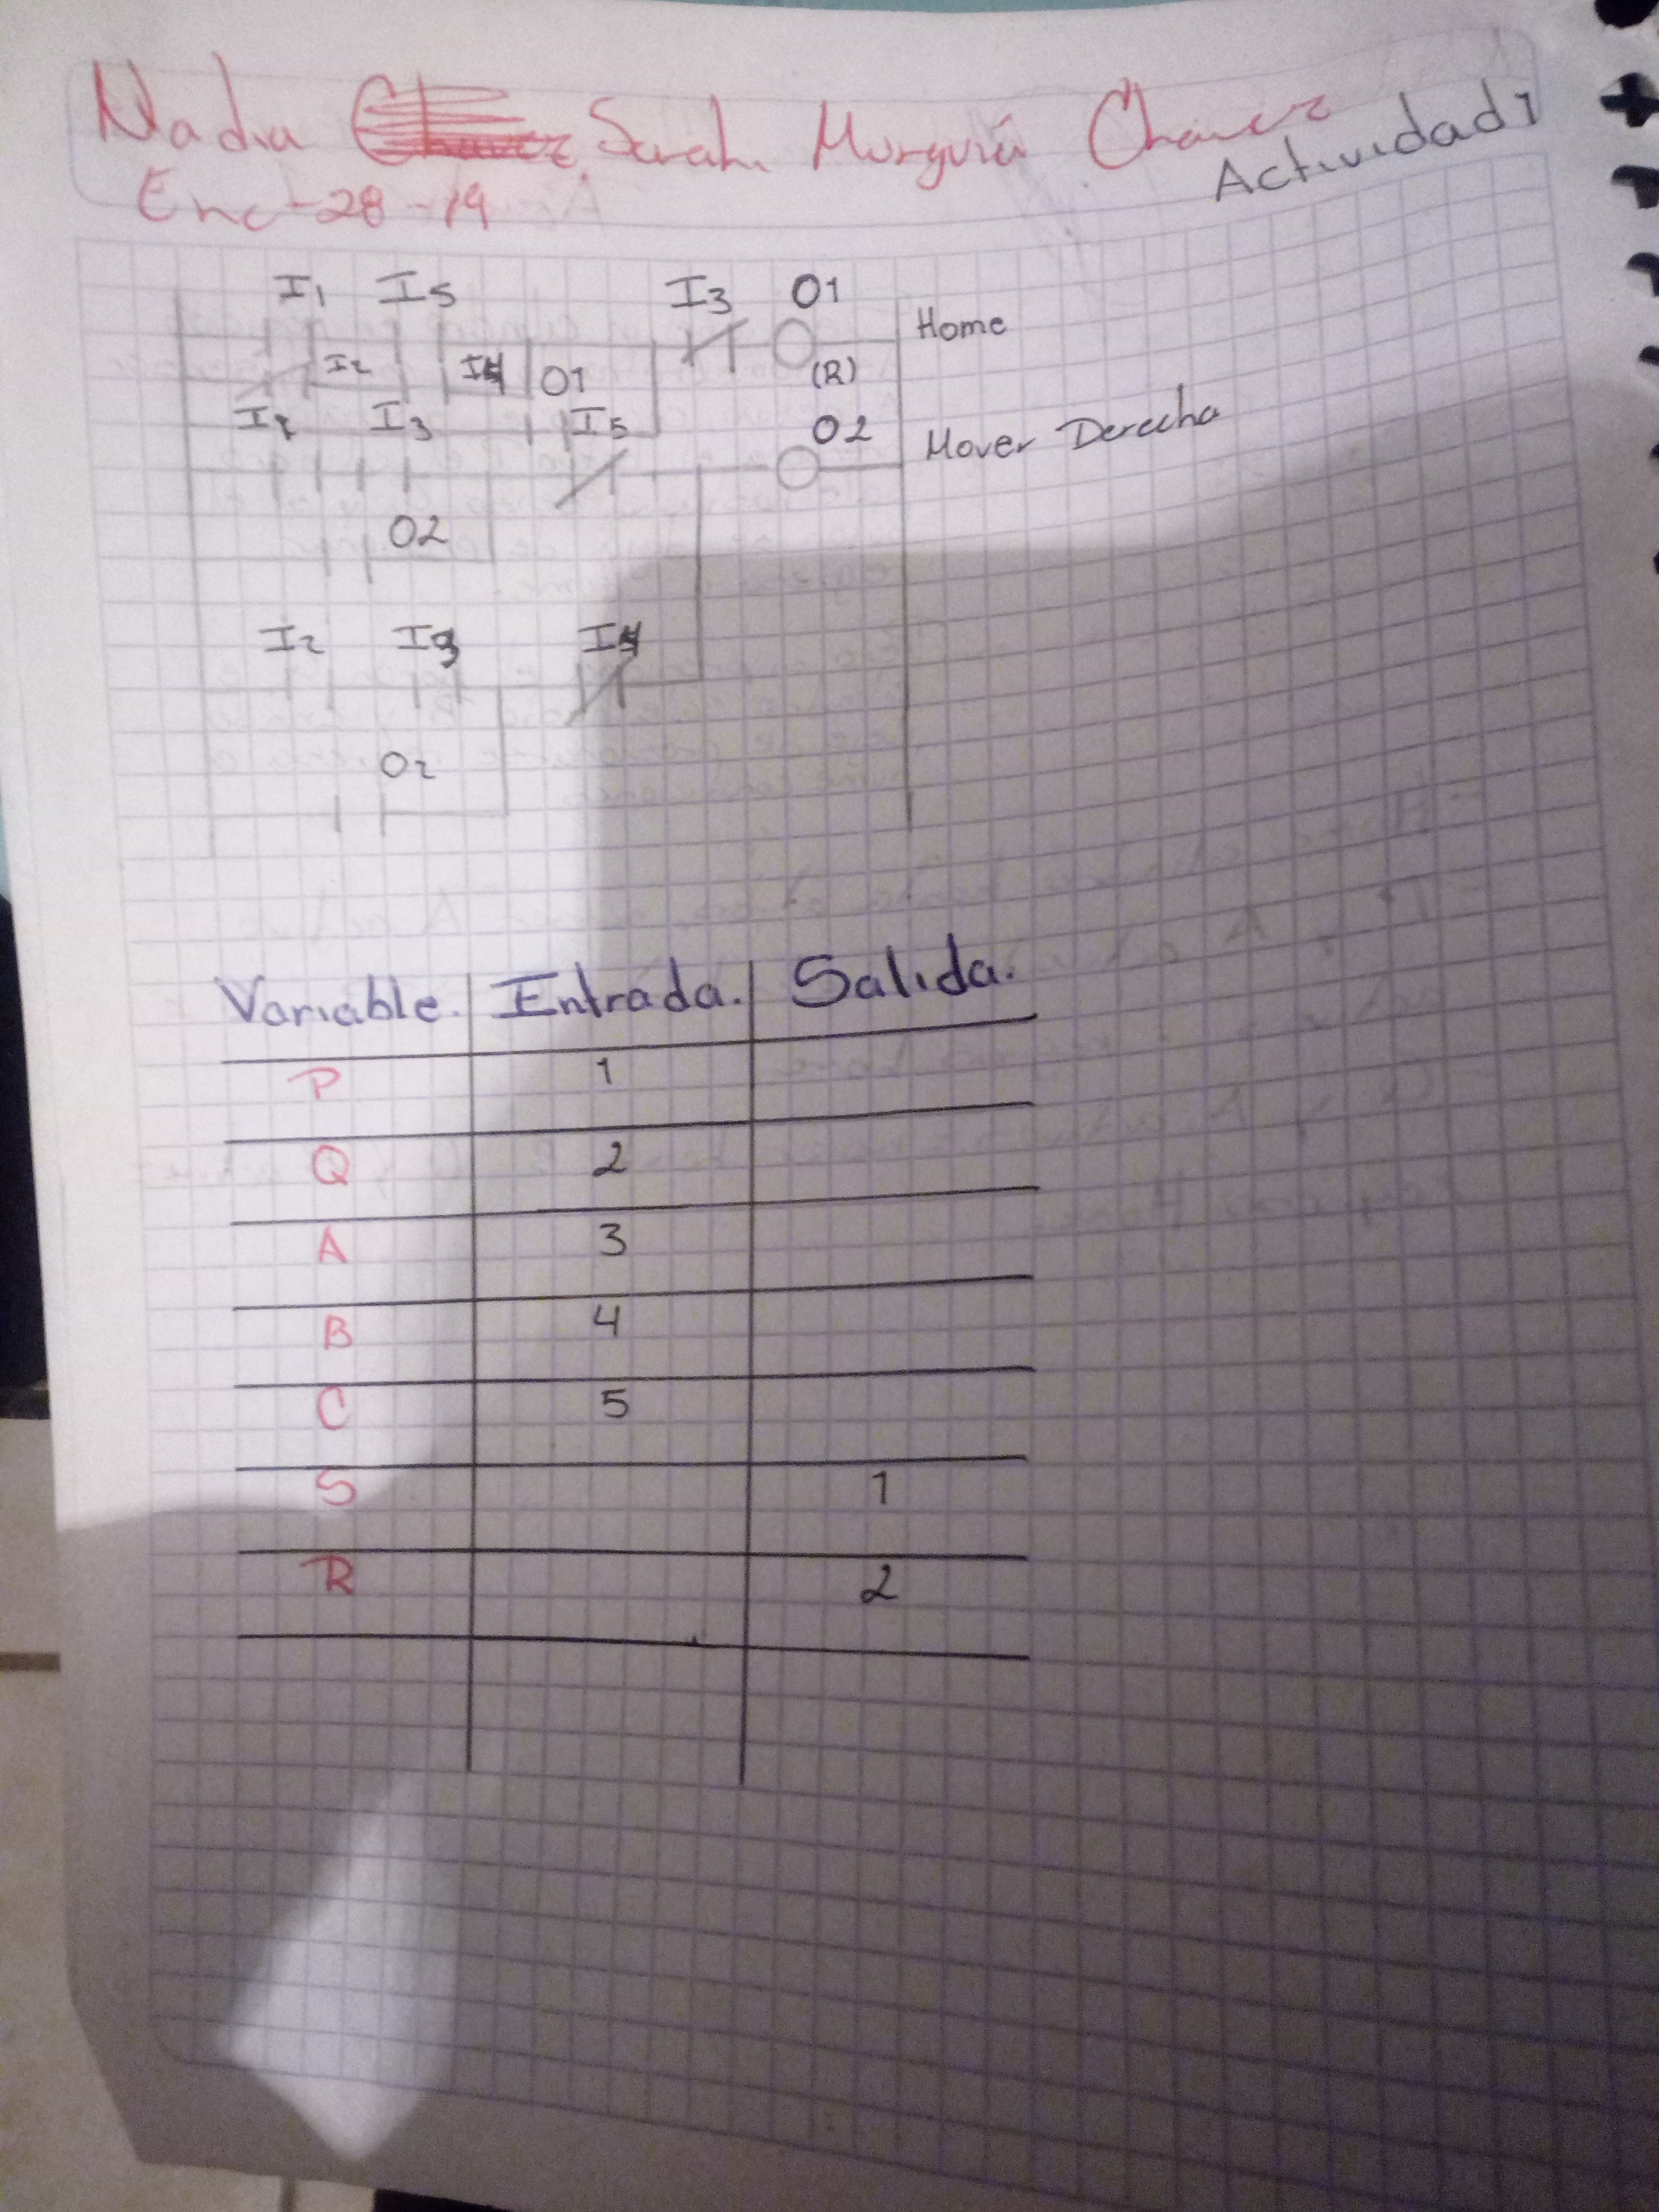 Nadia Sarah Murguía Chavez
Actividad 1
Ene-28-19
I1 I5 I3 O1
Home
I2 I4 O1 (R)
I3 I5 O2
Mover Derecha
O2
I2 I3 I4
O2
Variable. Entrada. Salida.
P 1
Q 2
A 3
B 4
C 5
S 1
R 2